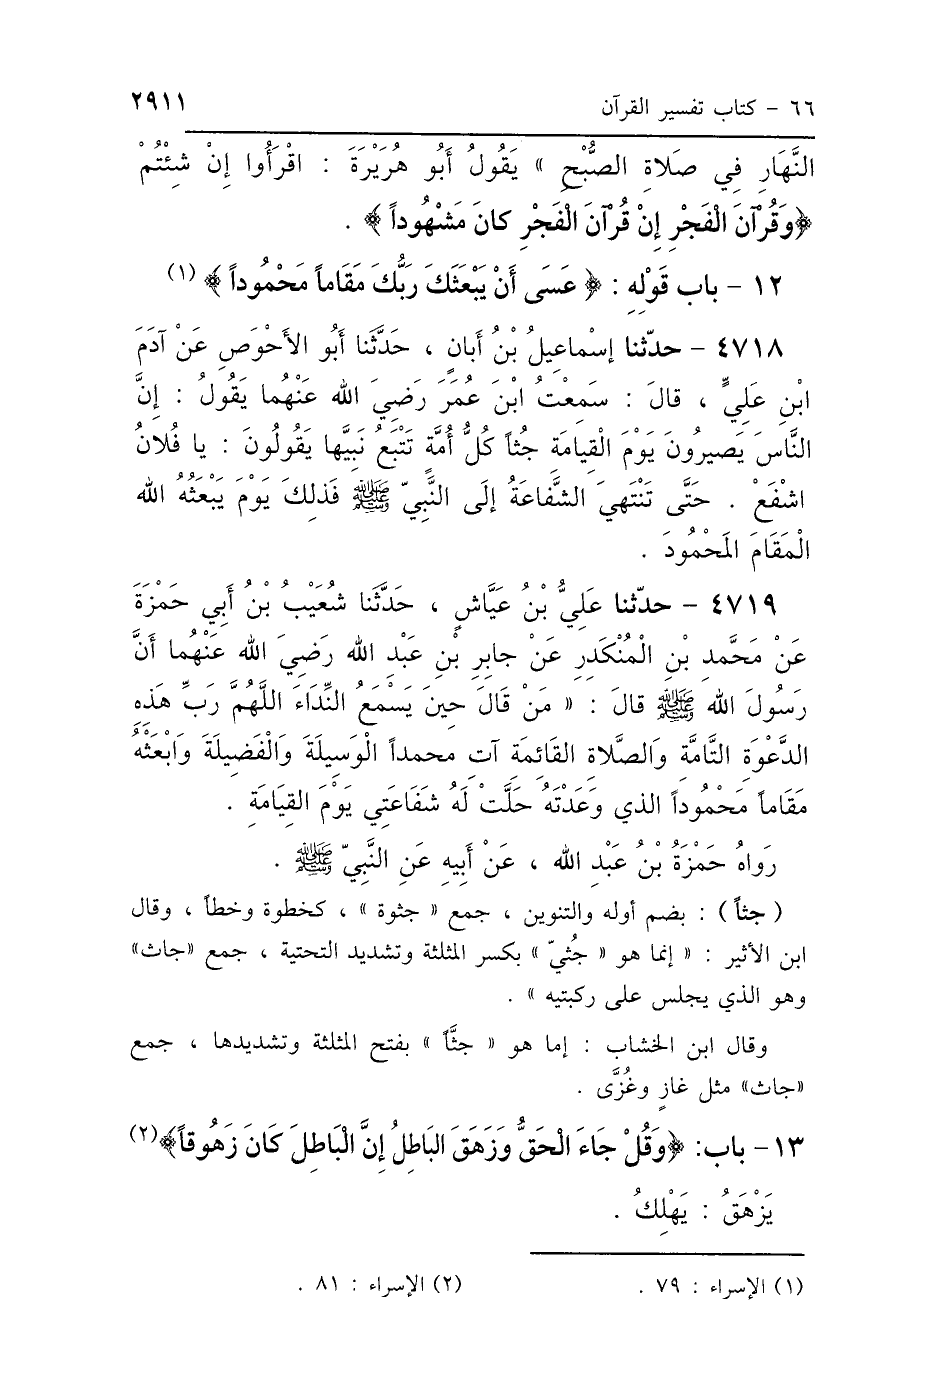 ٦٦ - كتاب تفسير القرآن ٢٩١١
النَّهَارِ فِي صَلَاةِ الصُّبْحِ » يَقُولُ أَبُو هُرَيْرَةَ : اقْرَأُوا إِنْ شِئْتُمْ
﴿وَقُرْآنَ الْفَجْرِ إِنْ قُرْآنَ الْفَجْرِ كانَ مَشْهُوداً ﴾ .
١٢ - باب قَوْلِهِ : ﴿ عَسَى أَنْ يَبْعَثَكَ رَبُّكَ مَقَاماً مَحْمُوداً ﴾ (١)
٤٧١٨ - حدّثنا إسْماعِيلُ بْنُ أَبَانٍ ، حَدَّثَنا أَبُو الأَحْوَصِ عَنْ آدَمَ
ابْنِ عَلِيٍّ ، قالَ : سَمِعْتُ ابْنَ عُمَرَ رَضِيَ الله عَنْهُما يَقُولُ : إنَّ
النَّاسَ يَصِيرُونَ يَوْمَ الْقِيامَةِ جُثاً كلُّ أُمَّةٍ تَتْبَعُ نَبِيَّها يَقُولُونَ : يا فُلانُ
اشْفَعْ . حَتَّى تَنْتَهِيَ الشَّفاعَةُ إلَى النَّبِيِّ ﷺ فَذلِكَ يَوْمَ يَبعَثُهُ الله
الْمَقَامَ المَحْمُودَ .
٤٧١٩ - حدّثنا عَلِيُّ بْنُ عَيَّاشٍ ، حَدَّثَنا شُعَيْبُ بْنُ أَبِي حَمْزَةَ
عَنْ مُحَمَّدِ بْنِ الْمُنْكَدِرِ عَنْ جابِرِ بْنِ عَبْدِ الله رَضِيَ الله عَنْهُما أَنَّ
رَسُولَ الله ﷺ قالَ : « مَنْ قَالَ حِينَ يَسْمَعُ النِّدَاءَ اللَّهُمَّ رَبِّ هَذِهِ
الدَّعْوَةِ التَّامَّةِ وَالصَّلَاةِ القَائِمَةِ آت محمداً الْوَسِيلَةَ وَالْفَضِيلَةَ وَابْعَثْهُ
مَقَاماً مَحْمُوداً الذي وَعَدْتَهُ حَلَّتْ لَهُ شَفَاعَتِي يَوْمَ القِيَامَةِ .
رَواهُ حَمْزَةُ بْنُ عَبْدِ الله ، عَنْ أَبِيهِ عَنِ النَّبِيِّ ﷺ .
( جثاً ) : بضم أوله والتنوين ، جمع « جثوة » ، كخطوة وخطاً ، وقال
ابن الأثير : « إنما هو « جُثيّ » بكسر المثلثة وتشديد التحتية ، جمع «جاث»
وهو الذي يجلس على ركبتيه » .
وقال ابن الخشاب : إما هو « جثَّاً » بفتح المثلثة وتشديدها ، جمع
«جاث» مثل غازٍ وغُزَّى .
١٣- باب: ﴿وَقُلْ جَاءَ الْحَقُّ وَزَهَقَ البَاطِلُ إنَّ الْبَاطِلَ كَانَ زَهُوقاً﴾(٢)
يَزْهَقُ : يَهْلِكُ .
(١) الإسراء : ٧٩ . (٢) الإسراء : ٨١ .